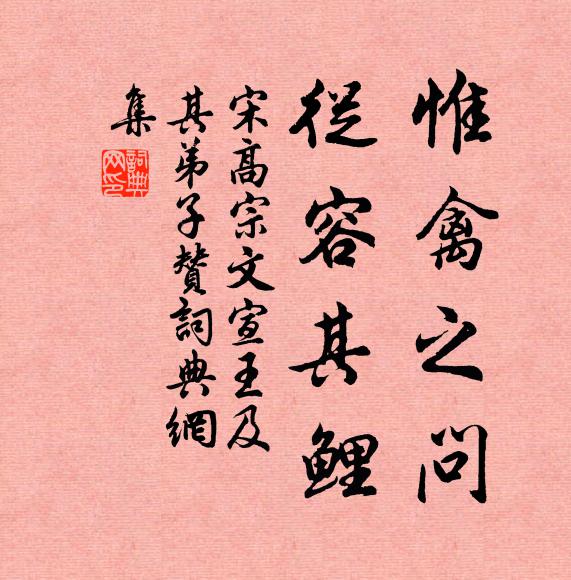 惟禽之問
從容其鯉
宋高宗文宣王及
其弟子贊詞典網
集
詞典
网印